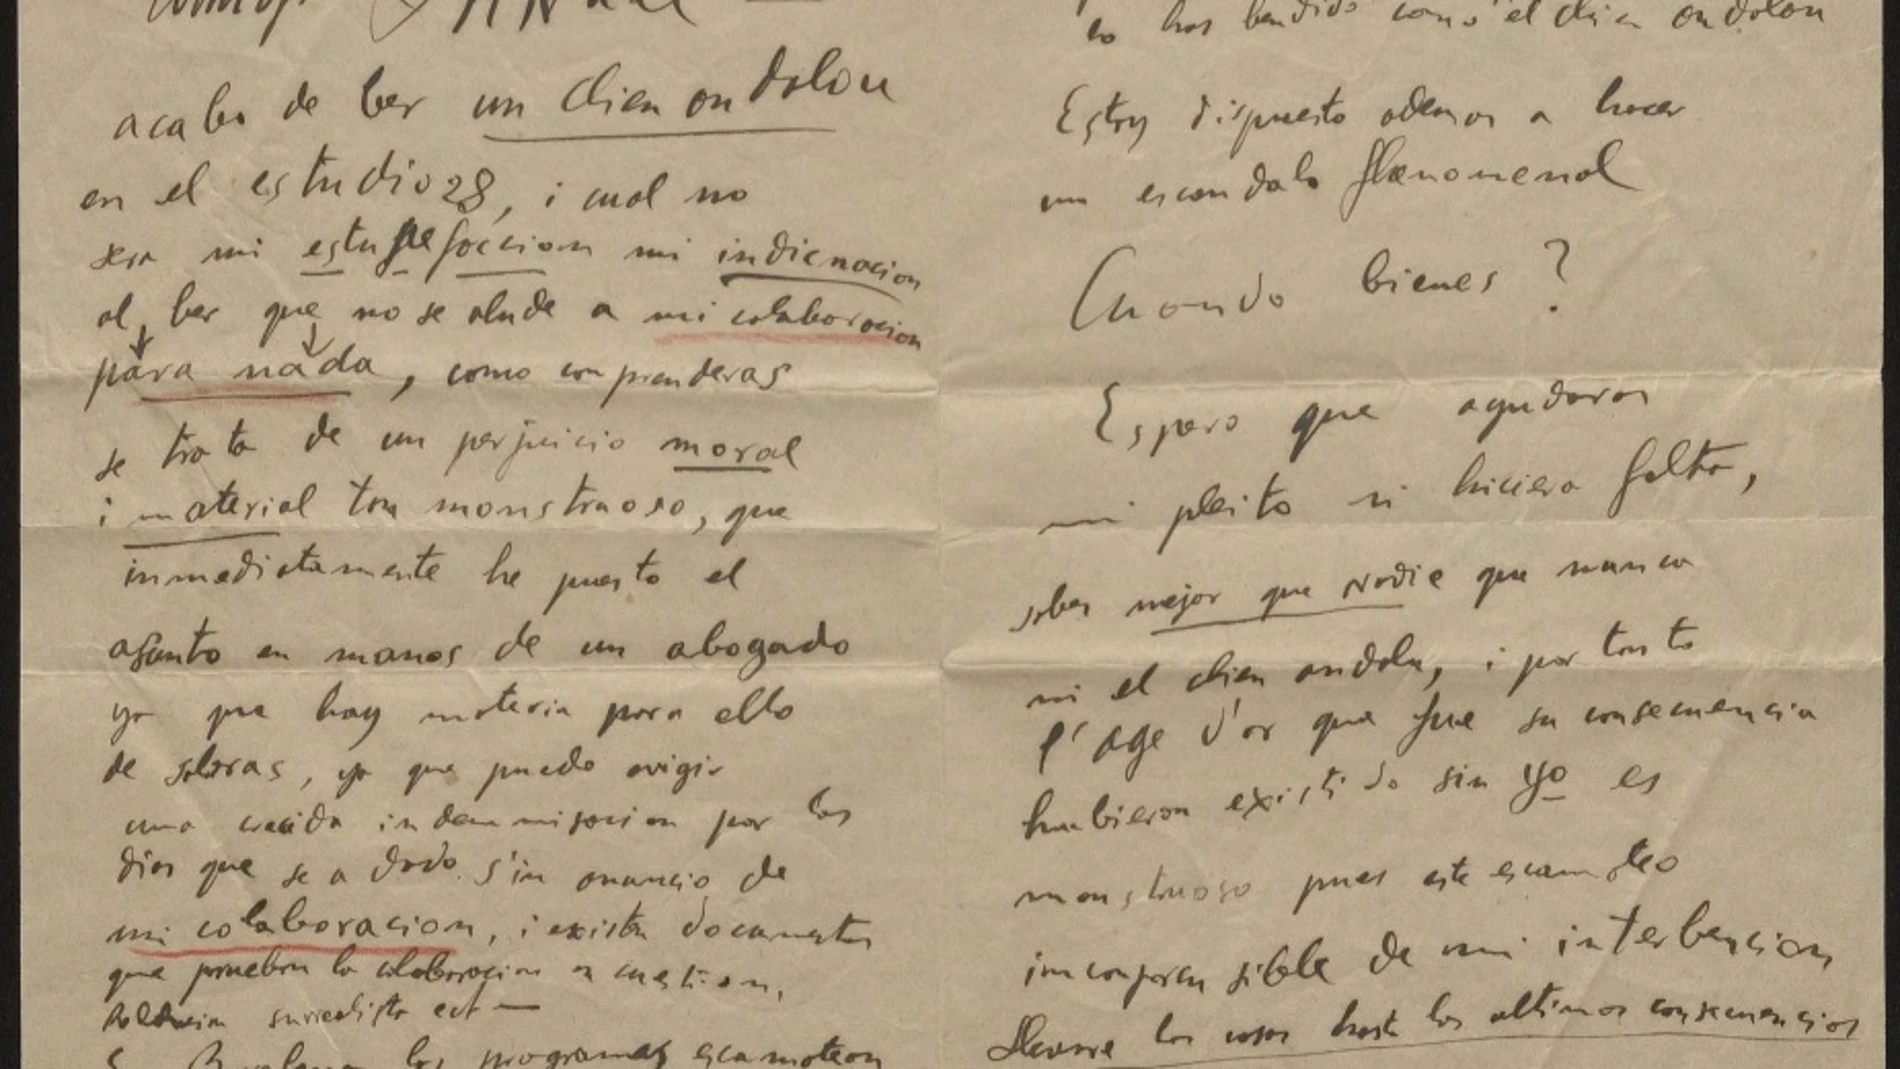 acabo de ber un chien andalou
en el estudio 28, i cual no
sera mi estupefaccion mi indicnacion
al ber que no se alude a mi colaboracion
para nada, como conprenderas
se trata de un perjuicio moral
i material tan monstruoso, que
inmediatamente he puesto el
asunto en manos de un abogado
ya que hay materia para ello
de sobras, ya que puedo exigir
una crecida indemnisacion por los
dias que se a dado sin anuncio de
mi colaboracion, i existen documentos
que prueban la colaboracion en cuestion,
surrealista ect —
los programas escamotean
lo has bendido como el chien andalou
Estoy dispuesto ademas a hacer
un escandalo fenomenal
Cuando bienes?
Espero que ayudaras
mi pleito si hiciera falta,
sabes mejor que nadie que nunca
ni el chien andalu, i por tanto
l'age d'or que fue su consecuencia
hubieran existido sin yo es
monstruoso pues este escamoteo
inconprensible de mi interbencion
llevare las cosas hasta las ultimas consecuencias